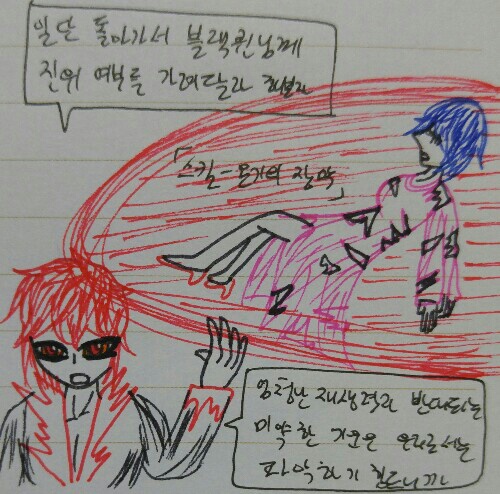 일단 돌아가서 블랙퀸님께
진위 여부를 가려달라 해보자
「스킬-온기의 장막」
엄청난 재생력과 반대되는
미약한 기운은 우리로서는
파악하기 힘드니까